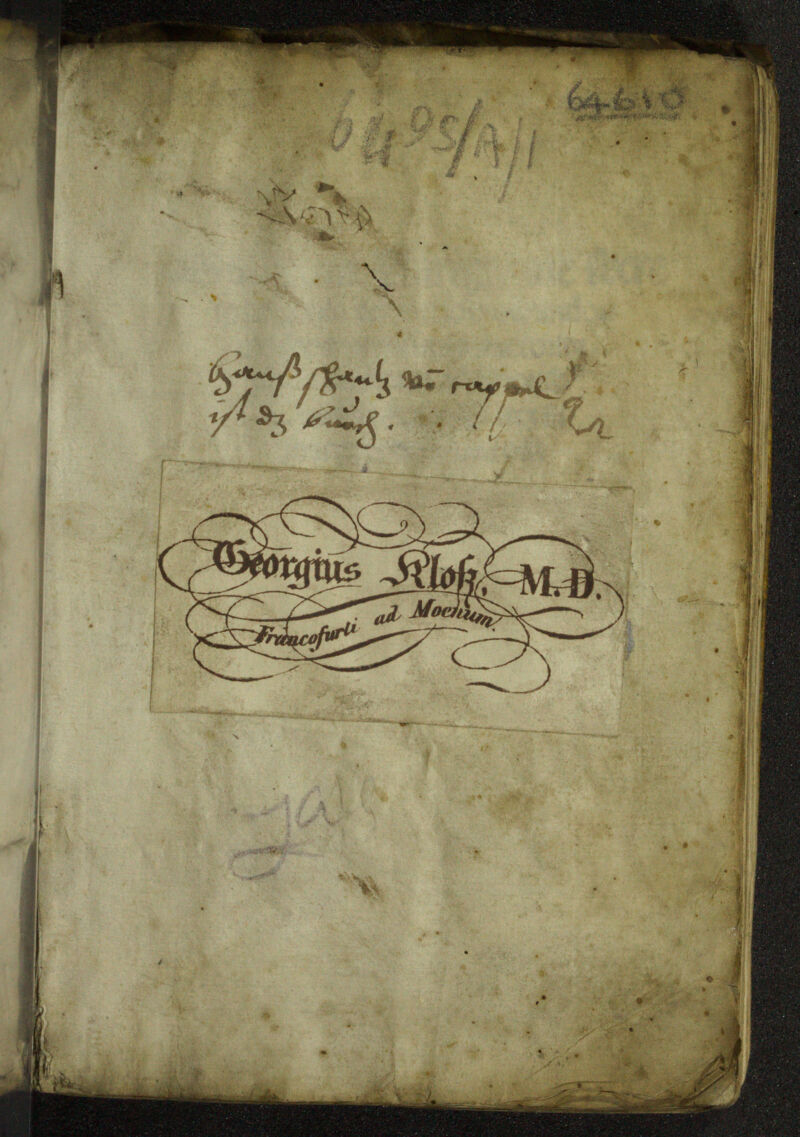 64610
6495/A/1
hanß schantz vō cappel
ist dz buoch.
Georgius Kloß, M.D.
Francofurti ad Moenum.